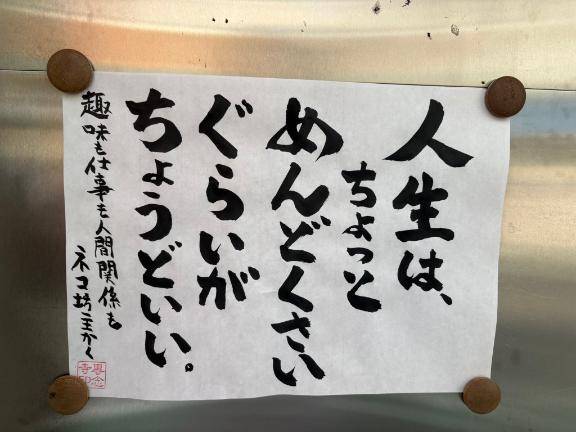 人生は、
ちょっと
めんどくさい
ぐらいが
ちょうどいい。
趣味も仕事も人間関係も
ネコ坊主かく